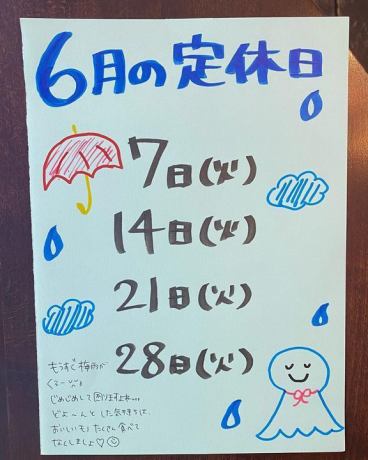 6月の定休日
7日(火)
14日(火)
21日(火)
28日(火)
もうすぐ梅雨が
くる〜\\\
じめじめして困りますよね...
どよ〜んとした気持ちは、
おいしいモノたくさん食べて
なくしましょ♡☺